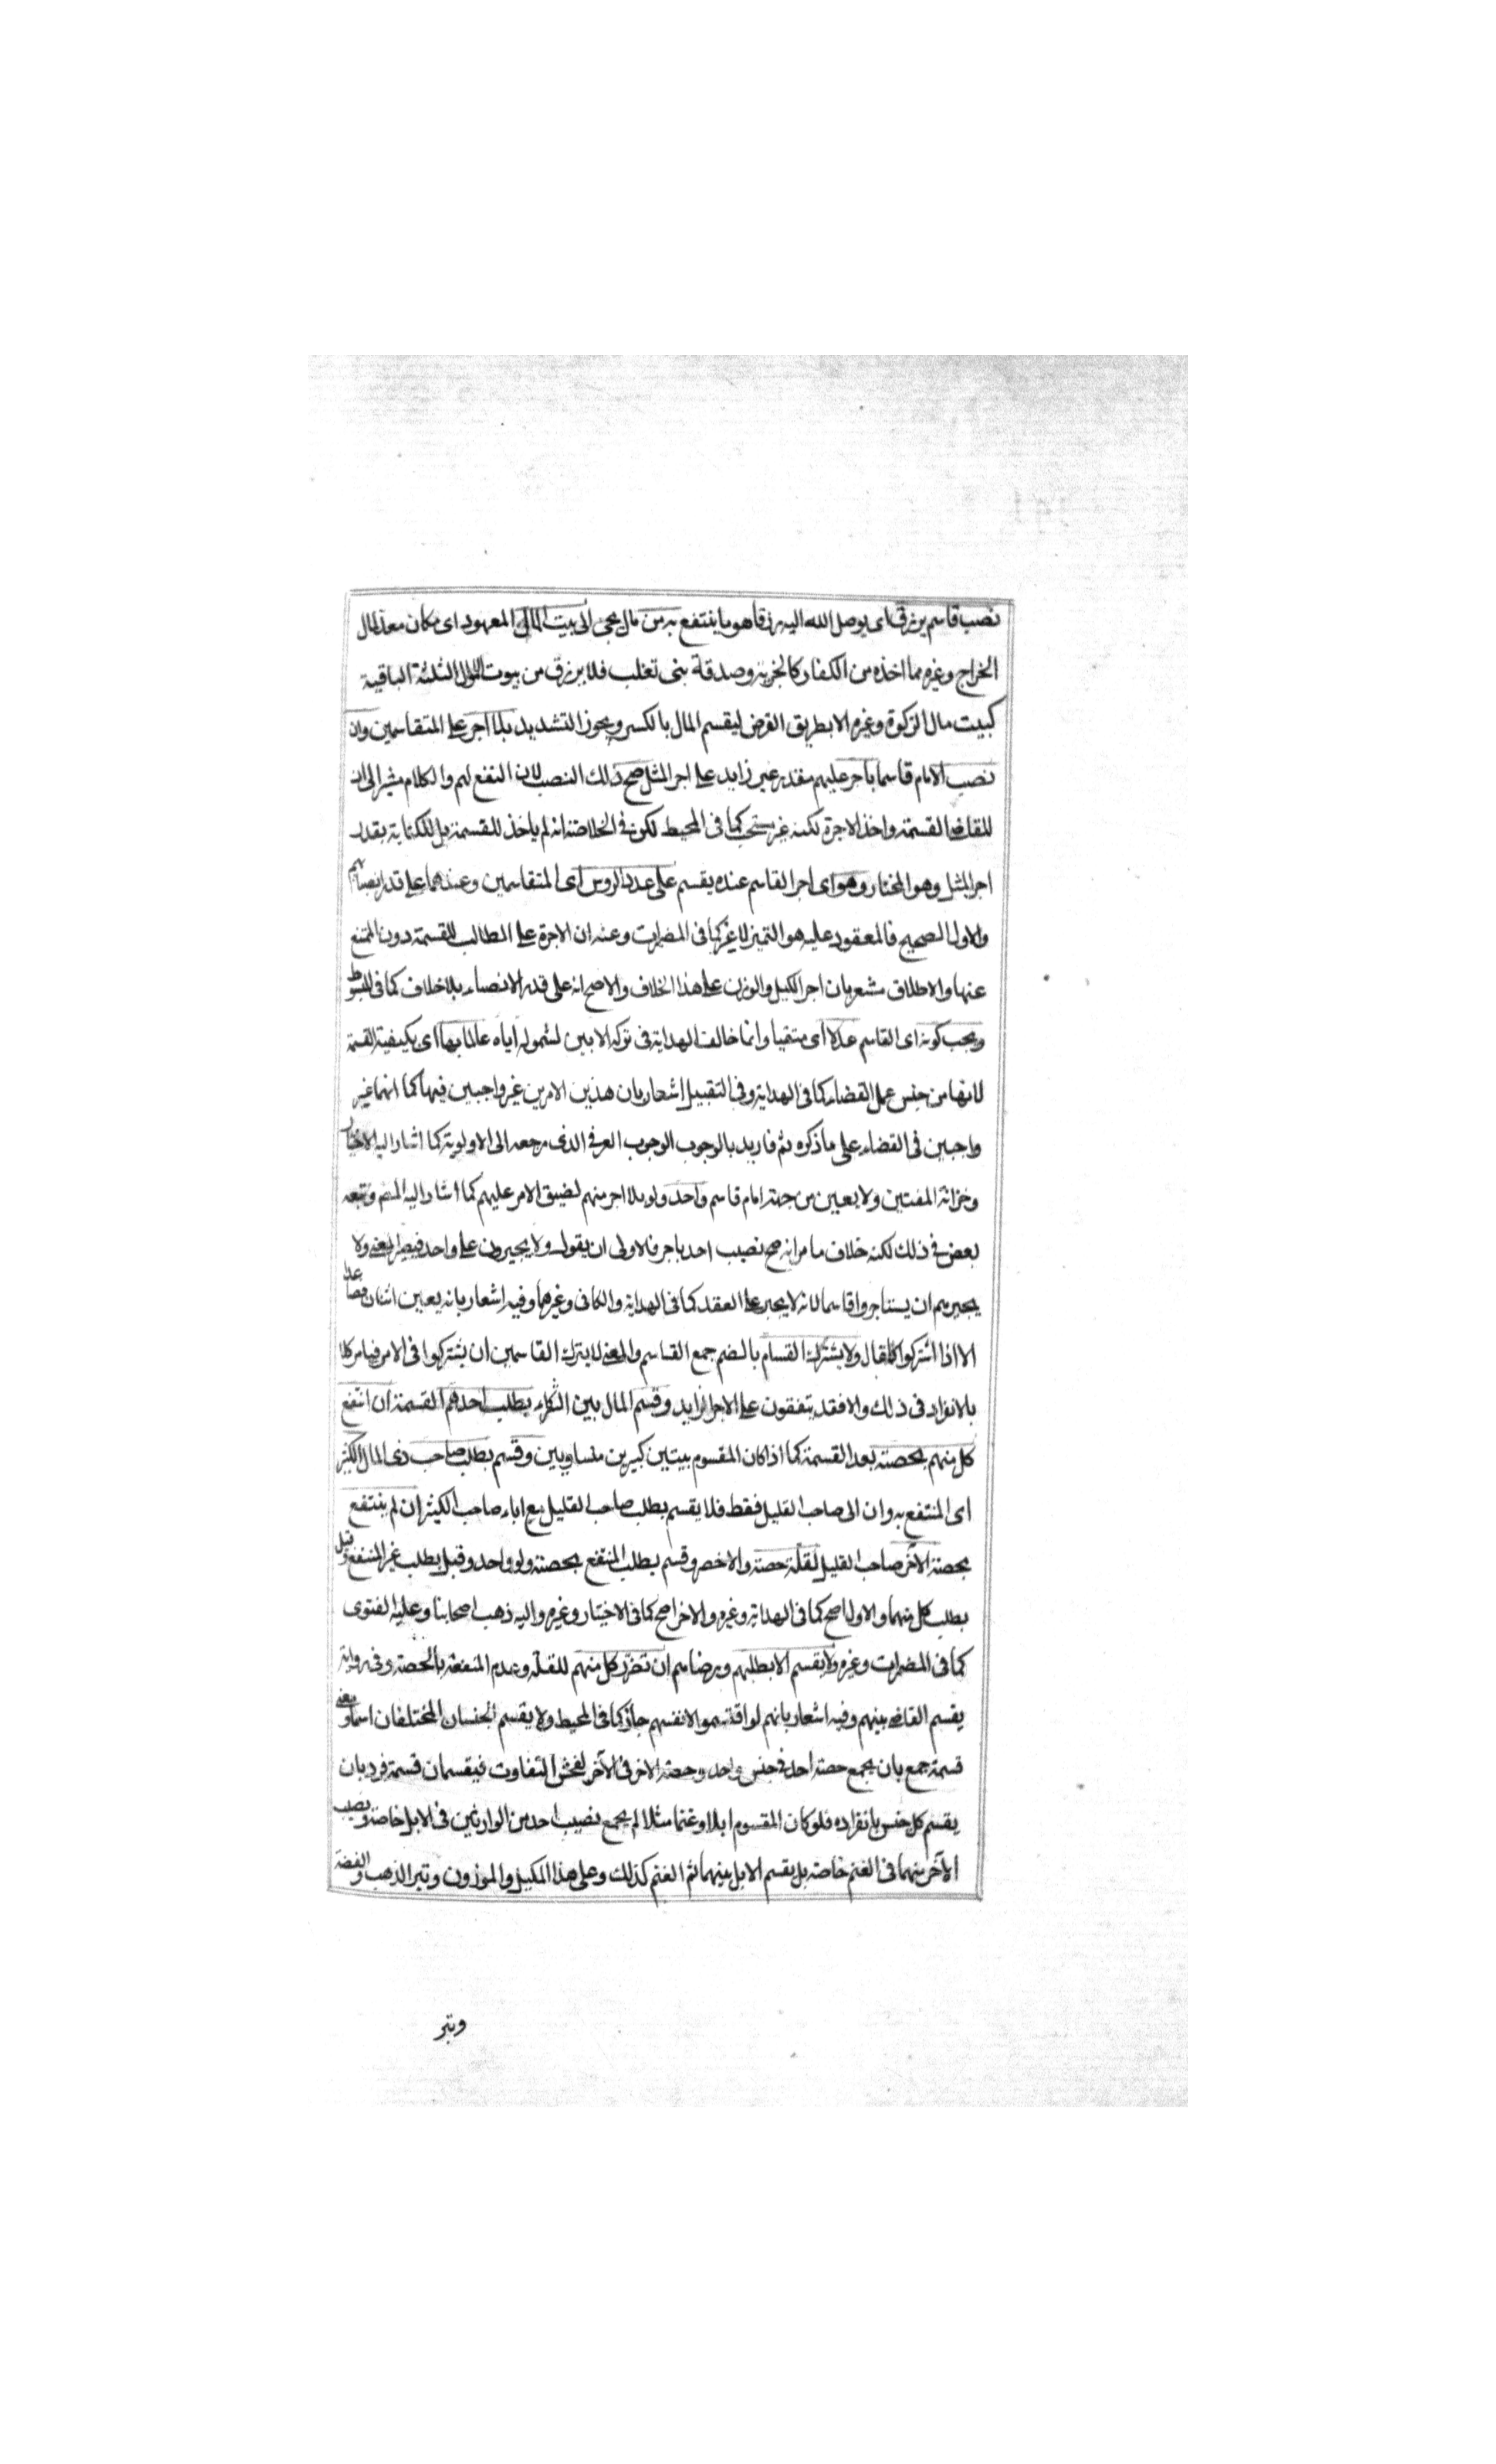 نصب قاسم يرزق اى يوصل الله اليه رزقا هو ما ينتفع به من مال يجئ الى بيت المال المعهود اى مكان معد لمال
الخراج وغيره مما اخذه من الكفار كالجزية وصدقة بنى تغلب فلا يرزق من بيوت الاموال الثلثة الباقية
كبيت مال الزكوة وغيره الا بطريق القرض ليقسم المال بالكسر ويجوز التشديد بلا اجر على المتقاسمين وان
نصب الامام قاسما باجر عليهم مقدر غير زايد على اجر المثل صح ذلك النصب لان النفع لهم والكلام مشير الى ان
للقاضى القسمة واخذ الاجرة لكنه غير مستحب كما فى المحيط لكن فى الخلاصة انه لم ياخذ للقسمة بل للكتابة بقدر
اجر المثل وهو المختار وهو اى اجر القاسم عنده يقسم على عدد الروس اى المتقاسمين وعندهما على قدر انصبائهم
والاول الصحيح فالمعقود عليه هو التميز لا غير كما فى المضمرات وعنه ان الاجرة على الطالب للقسمة دون الممتنع
عنها والاطلاق مشعر بان اجر الكيل والوزن على هذا الخلاف والاصح انه على قدر الانصباء بلا خلاف كما فى المبسوط
ويجب كونه اى القاسم عدلا اى متقيا وانما خالف الهداية فى تركه الامين لشموله اياه عالما بها اى بكيفية القسمة
لانها من جنس عمل القضاء كما فى الهداية وفى التقبيل اشعار بان هذين الامرين غير واجبين فيها كما انهما غير
واجبين فى القضاء على ما ذكروه ثم فاريد بالوجوب الوجوب العرفى الذى مرجعه الى الاولوية كما اشار اليه الاختيار
وخزانة المفتين ولا يعين من جهة امام قاسم واحد ولو بلا اجر منهم لضيق الامر عليهم كما اشار اليه المص وتبعه
بعض فى ذلك لكنه خلاف ما مر انه صح نصيب احد باجر فالاولى ان يقول ولا يجبرون على واحد فيصير المعنى ولا
يجبرهم ان يستاجروا قاسما لانه لا يجبر على العقد كما فى الهداية والكافى وغيرهما وفيه اشعار بانه يعين اثنان فصاعدا
الا اذا اشتركوا كما قال ولا يشترك القسام بالضم جمع القاسم والمعنى لا يترك القاسمين ان يشتركوا فى الامر فيامر كلا
بالانفراد فى ذلك والا فقد يتفقون على الاجر الزايد وقسم المال بين الشركاء بطلب احدهم القسمة ان انتفع
كل منهم بحصته بعد القسمة كما اذا كان المقسوم بيتين كبيرين متساويين وقسم بطلب صاحب ذى المال الكثير
اى المنتفع به وان ابى صاحب القليل فقط فلا يقسم بطلب صاحب القليل مع اباء صاحب الكثير ان لم ينتفع
بحصته الآخر صاحب القليل لقلة حصته والاخصر وقسم بطلب المنتفع بحصته ولو واحد وقيل بطلب غير المنتفع وقيل
بطلب كل منهما والاول اصح كما فى الهداية وغيره والاخر اصح كما فى الاختيار وغيره واليه ذهب اصحابنا وعليه الفتوى
كما فى المضمرات وغيره ولا يقسم الا بطلبهم ورضاهم ان تضرر كل منهم للقلة وعدم المنفعة بالحصة وفى رواية
يقسم القاضى بينهم وفيه اشعار بانهم لو اقتسموا لانفسهم جاز كما فى المحيط ولا يقسم الجنسان المختلفان اسما ومعنى
قسمة جمع بان يجمع حصة احد فى جنس واحد وحصة الاخر فى الآخر لفحش التفاوت فيقسمان قسمة فرد بان
يقسم كل جنس بانفراده فلو كان المقسوم ابلا وغنما مثلا لم يجمع نصيب احد من الوارثين فى الابل خاصة ونصيب
الآخر منهما فى الغنم خاصة بل يقسم الابل بينهما ثم الغنم كذلك وعلى هذا المكيل والموزون وتبر الذهب والفضة
وتبر